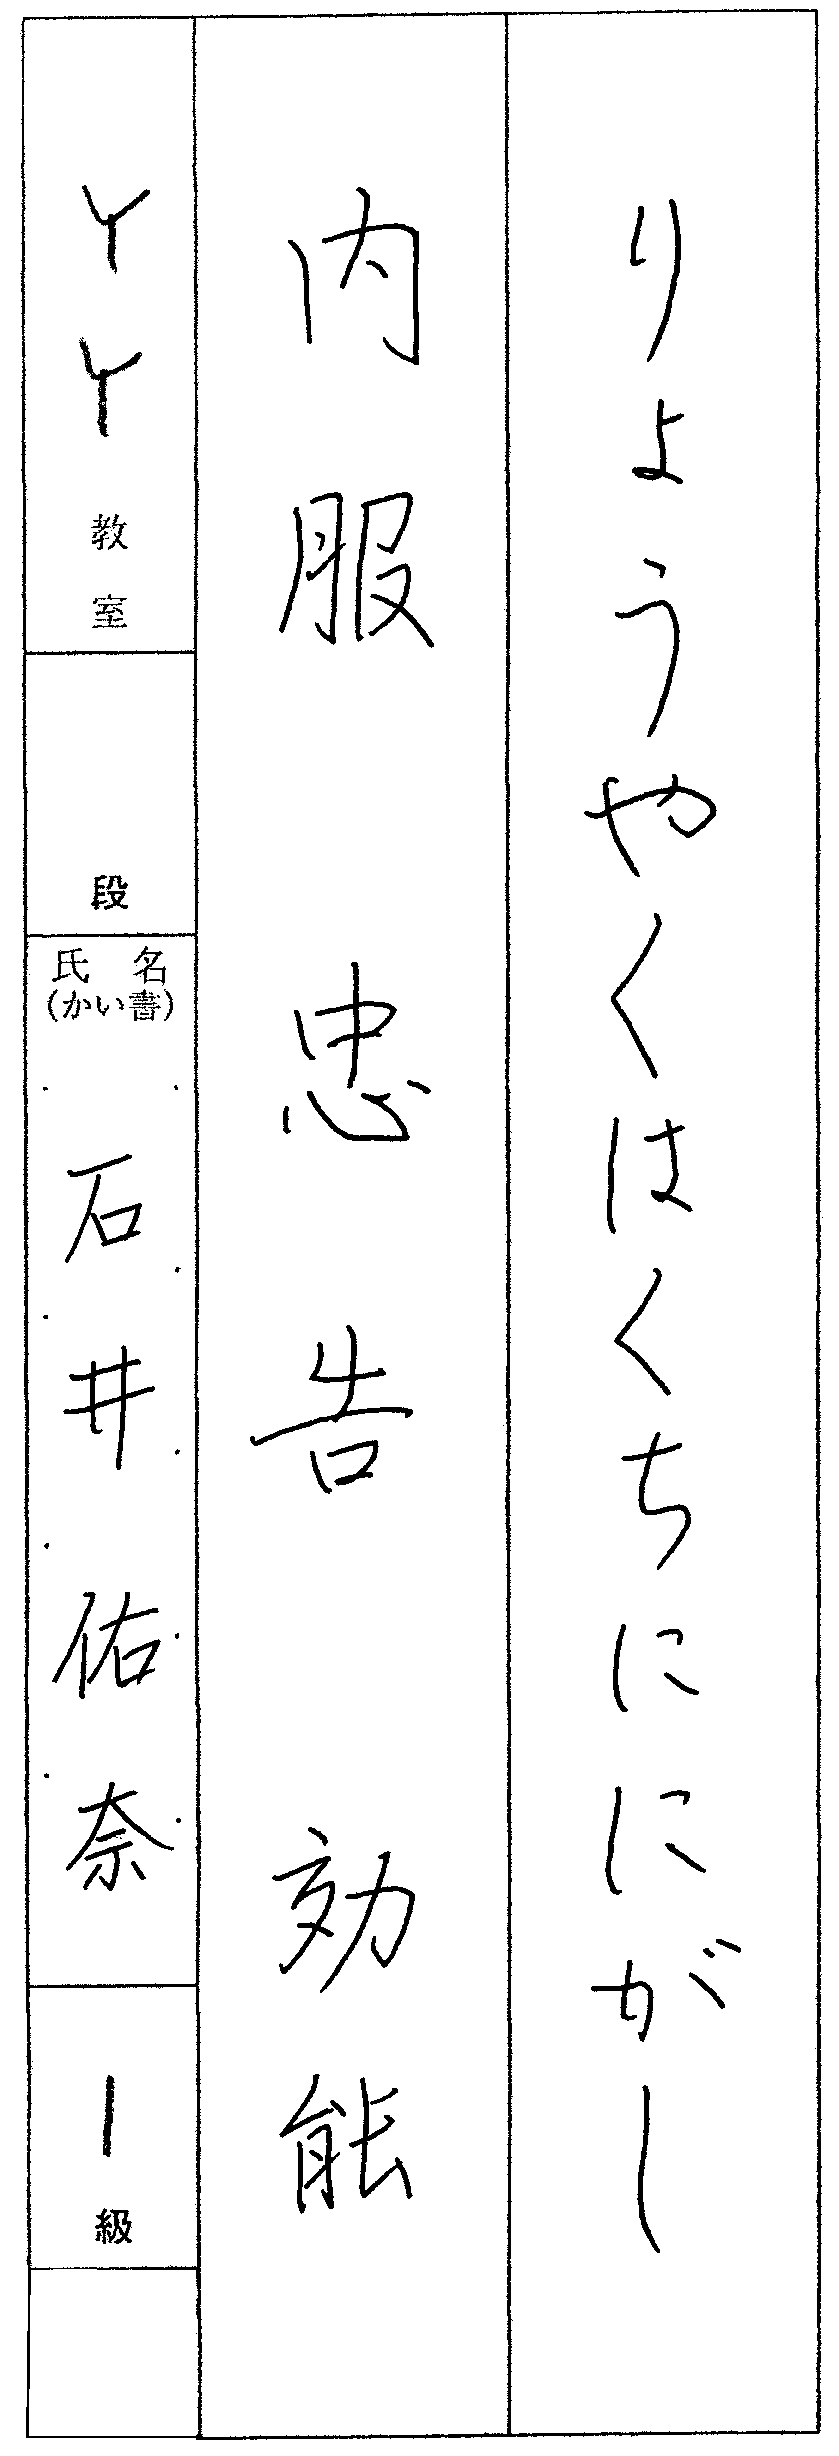 りょうやくはくちににがし
内服 忠告 効能
YY教室
段
氏名
(かい書)
石井佑奈
1級